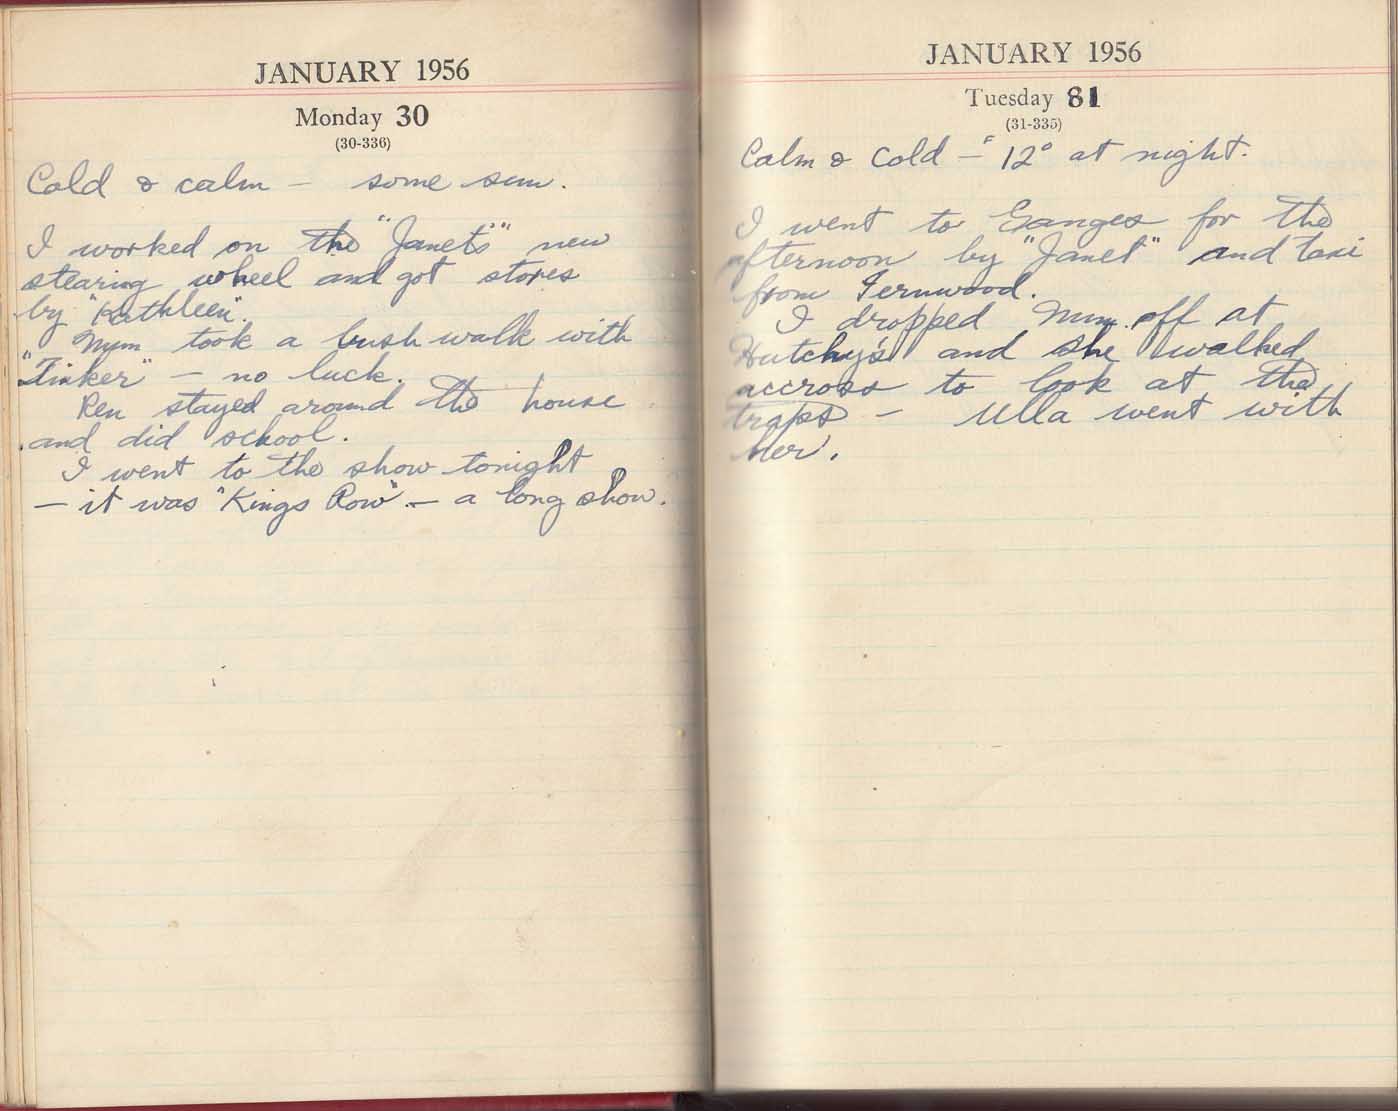 JANUARY 1956
Monday 30
(30-336)
Cold & calm – some sun.
I worked on the "Janet's" new
stearing wheel and got stores
by "Kathleen".
Mum took a bush walk with
"Tinker" – no luck.
Ren stayed around the house
and did school.
I went to the show tonight
– it was "Kings Row" – a long show.
JANUARY 1956
Tuesday 31
(31-335)
Calm & cold – 12° at night.
I went to Ganges for the
afternoon by "Janet" and taxi
from Fernwood.
I dropped Mum off at
Hutchy's and she walked
accross to look at the
traps – Ulla went with
her.